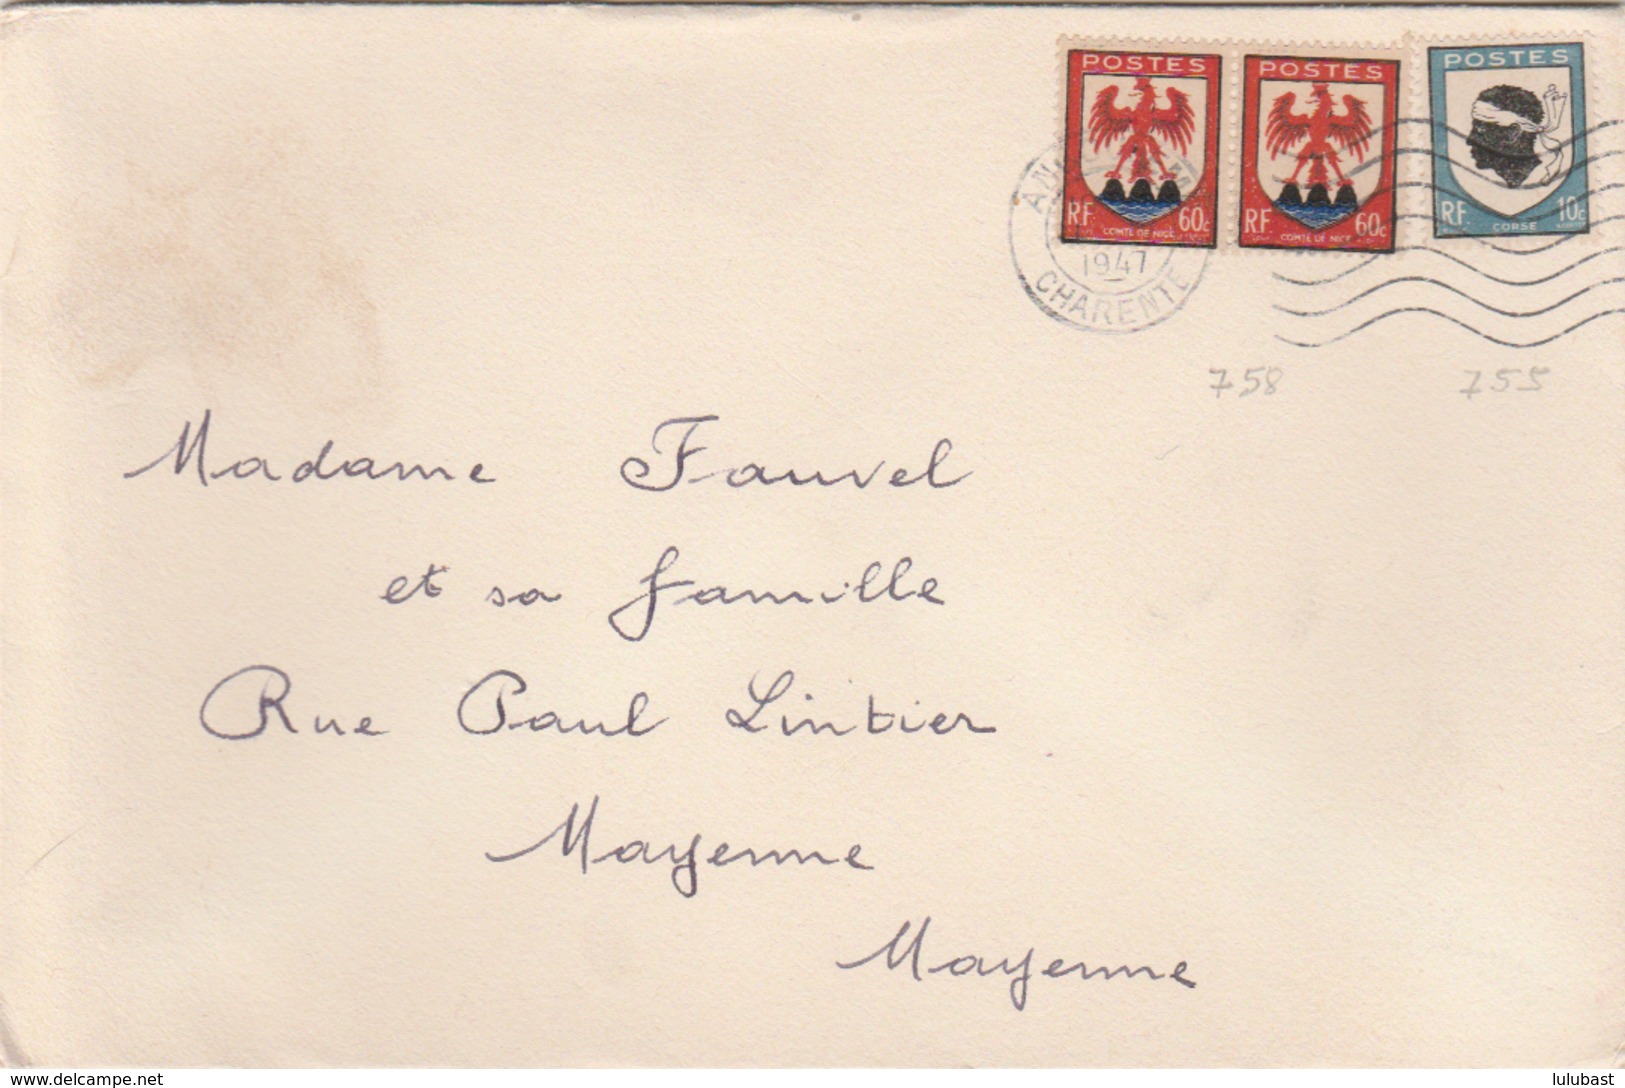 POSTES POSTES POSTES
RF 60c RF 60c RF 10c
COMTÉ DE NICE COMTÉ DE NICE CORSE
1947
CHARENTE
758 755
Madame Fauvel
et sa famille
Rue Paul Lintier
Mayenne
Mayenne
www.delcampe.net lulubast